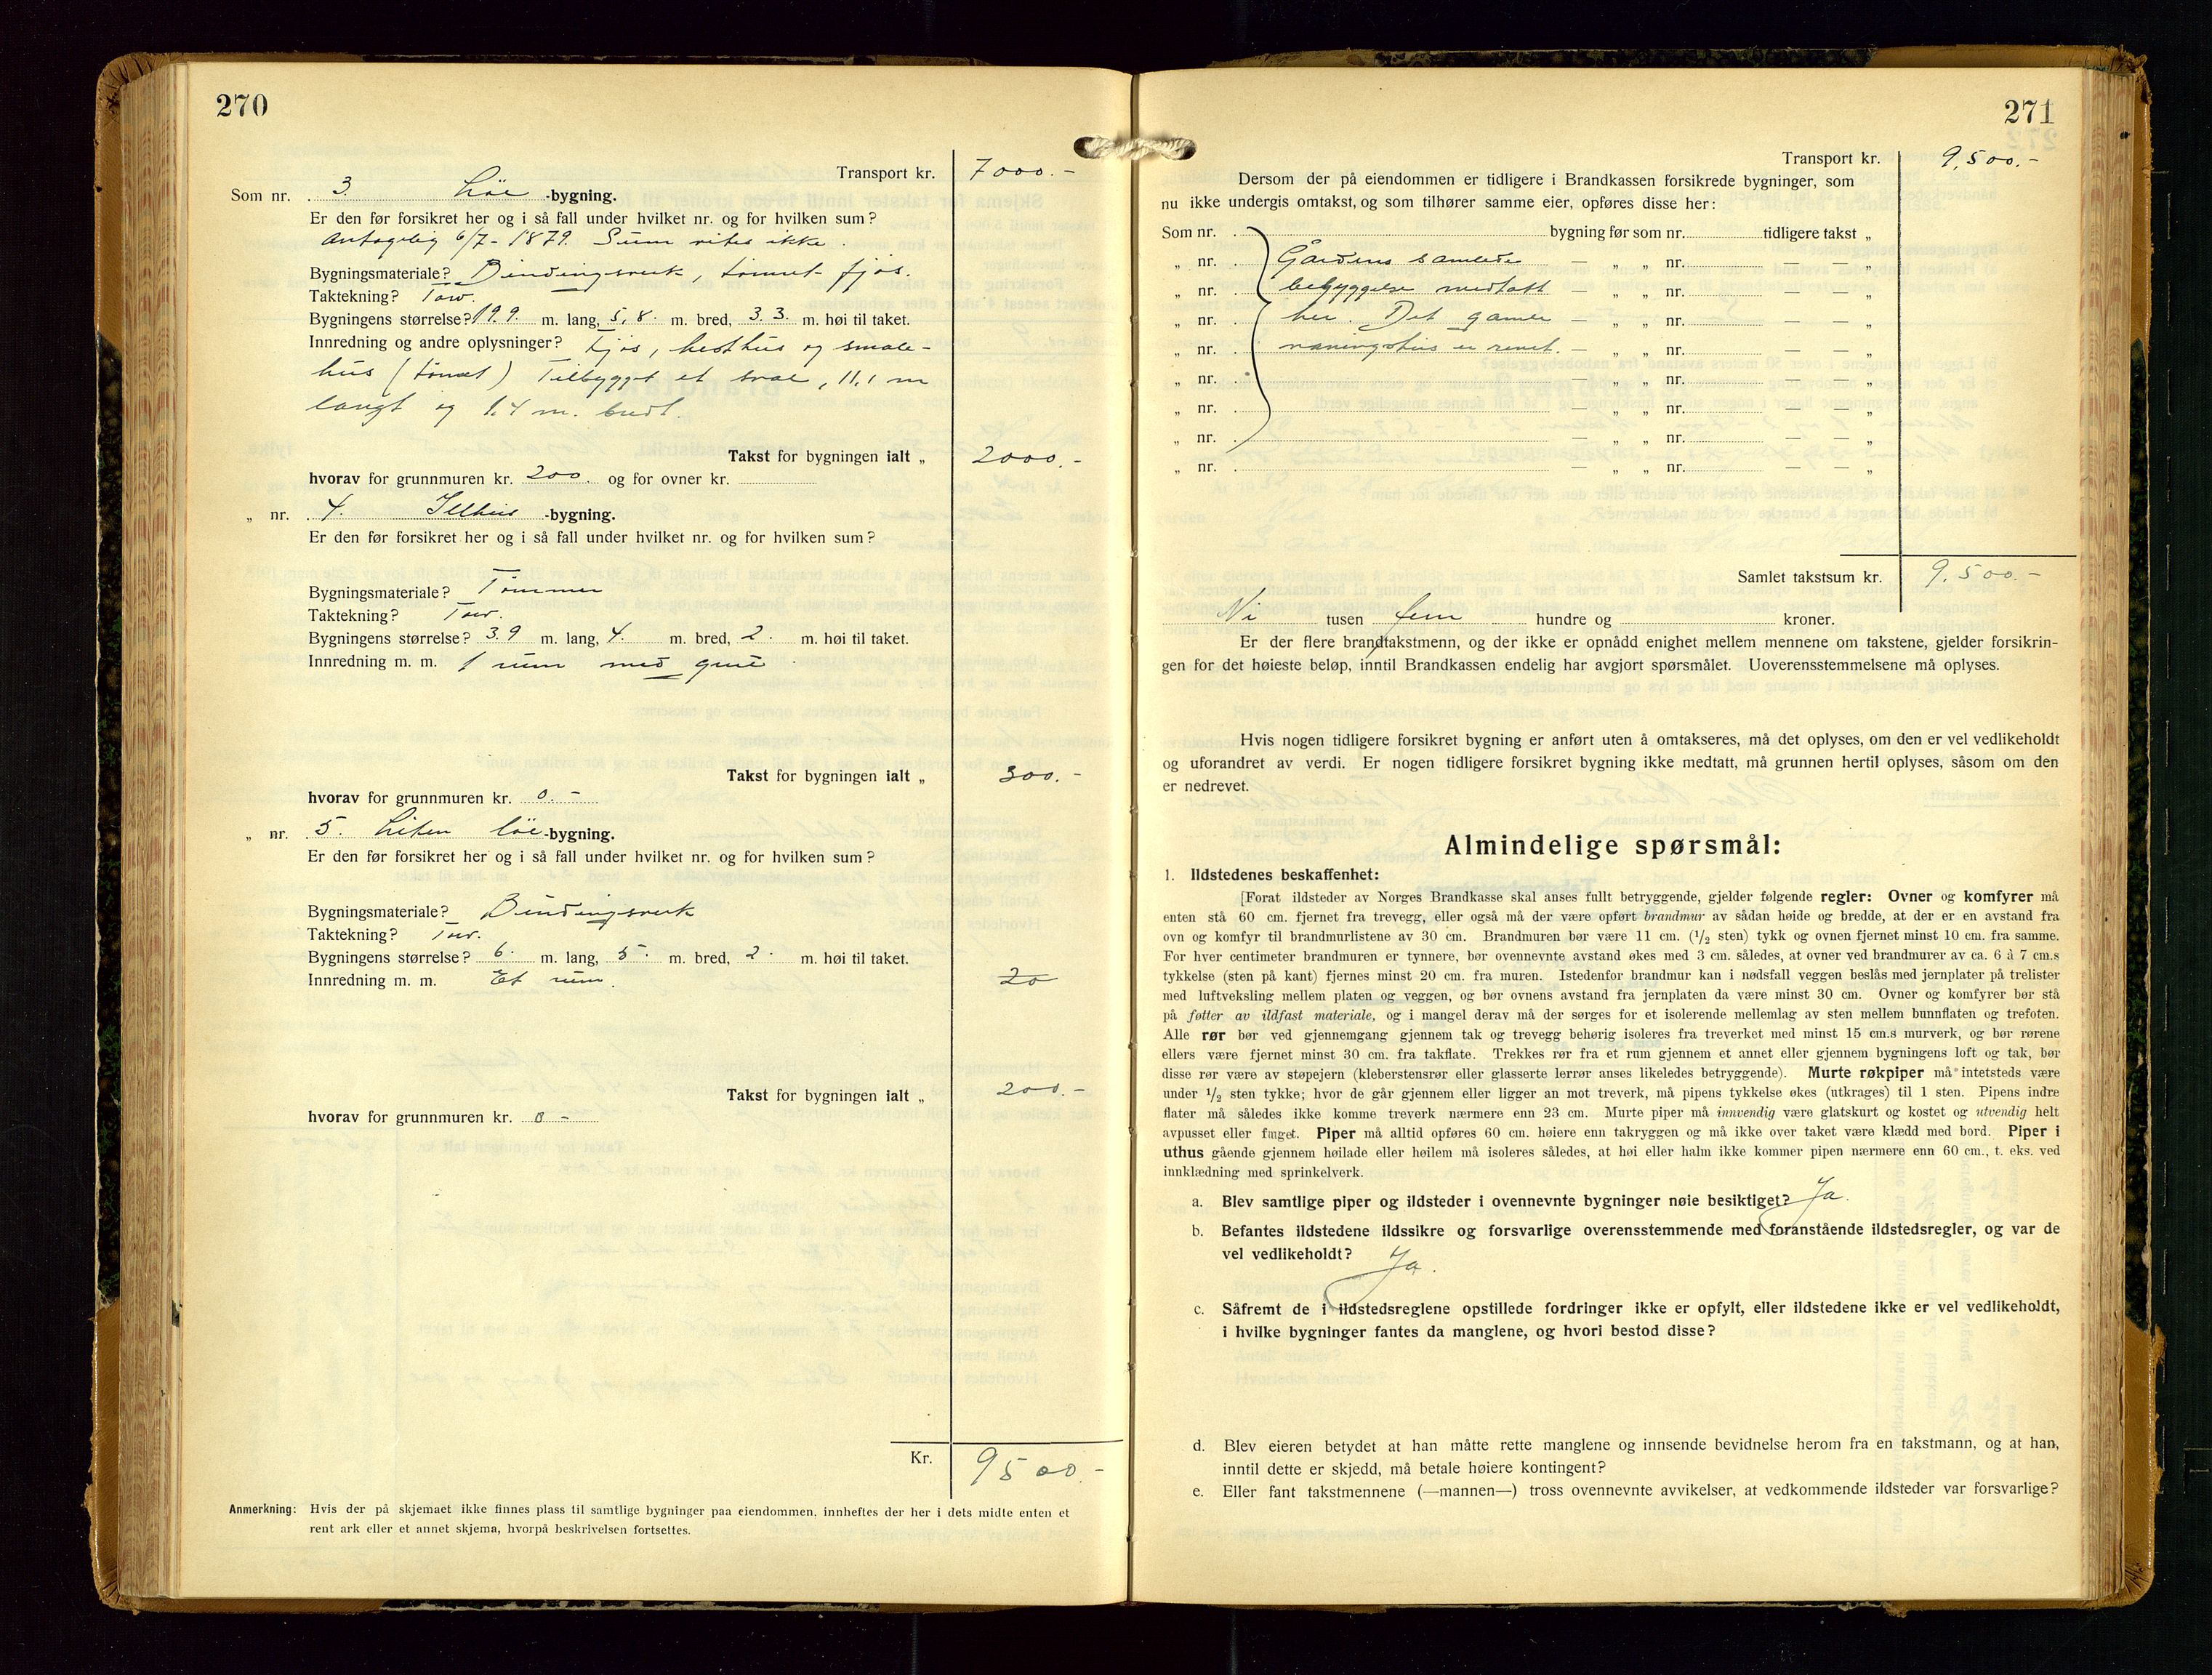 270
Transport kr. 7000.-
Som nr. 3. Löe -bygning.
Er den før forsikret her og i så fall under hvilket nr. og for hvilken sum?
Antagelig 6/7-1879. Sum vites ikke.
Bygningsmateriale? Bindingsverk, tømret fjøs.
Taktekning? Torv.
Bygningens størrelse? 19.9 m. lang, 5,8. m. bred, 3.3. m. høi til taket.
Innredning og andre oplysninger? Fjøs, hesthus og smale-
hus (tømret) Tilbygget et sval, 11,1 m
langt og 1.4 m. bredt.
Takst for bygningen ialt „ 2000.-
hvorav for grunnmuren kr. 200. og for ovner kr.
„ nr. 4. Illhus -bygning.
Er den før forsikret her og i så fall under hvilket nr. og for hvilken sum?
Bygningsmateriale? Tømmer
Taktekning? Torv.
Bygningens størrelse? 3.9 m. lang, 4. m. bred, 2. m. høi til taket.
Innredning m. m. 1 rum med grue.
Takst for bygningen ialt „ 300.-
hvorav for grunnmuren kr. 0.-
„ nr. 5. Liten löe -bygning.
Er den før forsikret her og i så fall under hvilket nr. og for hvilken sum?
Bygningsmateriale? Bindingsverk
Taktekning? Torv.
Bygningens størrelse? 6. m. lang, 5. m. bred, 2. m. høi til taket.
Innredning m. m. Et rum. 20
Takst for bygningen ialt „ 200.-
hvorav for grunnmuren kr. 0-
Kr. 9500.-
Anmerkning: Hvis der på skjemaet ikke finnes plass til samtlige bygninger paa eiendommen, innheftes der her i dets midte enten et
rent ark eller et annet skjema, hvorpå beskrivelsen fortsettes.
271
Transport kr. 9,500.-
Dersom der på eiendommen er tidligere i Brandkassen forsikrede bygninger, som
nu ikke undergis omtakst, og som tilhører samme eier, opføres disse her:
Som nr. bygning før som nr. tidligere takst „
„ nr. Gårdens samlede — „ „ nr. — — „
„ nr. bebyggelse medtatt — „ „ nr. — — „
„ nr. her. Det gamle — „ „ nr. — — „
„ nr. våningshus er revet. — „ „ nr. — — „
„ nr. — „ „ nr. — — „
„ nr. — „ „ nr. — — „
„ nr. — „ „ nr. — — „
„ nr. — „ „ nr. — — „
Samlet takstsum kr. 9.500.-
Ni tusen fem hundre og kroner.
Er der flere brandtakstmenn, og der ikke er opnådd enighet mellem mennene om takstene, gjelder forsikrin-
gen for det høieste beløp, inntil Brandkassen endelig har avgjort spørsmålet. Uoverensstemmelsene må oplyses.
Hvis nogen tidligere forsikret bygning er anført uten å omtakseres, må det oplyses, om den er vel vedlikeholdt
og uforandret av verdi. Er nogen tidligere forsikret bygning ikke medtatt, må grunnen hertil oplyses, såsom om den
er nedrevet.
Almindelige spørsmål:
1. Ildstedenes beskaffenhet:
[Forat ildsteder av Norges Brandkasse skal anses fullt betryggende, gjelder følgende regler: Ovner og komfyrer må
enten stå 60 cm. fjernet fra trevegg, eller også må der være opført brandmur av sådan høide og bredde, at der er en avstand fra
ovn og komfyr til brandmurlistene av 30 cm. Brandmuren bør være 11 cm. (1/2 sten) tykk og ovnen fjernet minst 10 cm. fra samme.
For hver centimeter brandmuren er tynnere, bør ovennevnte avstand økes med 3 cm. således, at ovner ved brandmurer av ca. 6 à 7 cm.s
tykkelse (sten på kant) fjernes minst 20 cm. fra muren. Istedenfor brandmur kan i nødsfall veggen beslås med jernplater på trelister
med luftveksling mellem platen og veggen, og bør ovnens avstand fra jernplaten da være minst 30 cm. Ovner og komfyrer bør stå
på føtter av ildfast materiale, og i mangel derav må der sørges for et isolerende mellemlag av sten mellem bunnflaten og trefoten.
Alle rør bør ved gjennemgang gjennem tak og trevegg behørig isoleres fra treverket med minst 15 cm.s murverk, og bør rørene
ellers være fjernet minst 30 cm. fra takflate. Trekkes rør fra et rum gjennem et annet eller gjennem bygningens loft og tak, bør
disse rør være av støpejern (kleberstensrør eller glasserte lerrør anses likeledes betryggende). Murte røkpiper må intetsteds være
under 1/2 sten tykke; hvor de går gjennem eller ligger an mot treverk, må pipens tykkelse økes (utkrages) til 1 sten. Pipens indre
flater må således ikke komme treverk nærmere enn 23 cm. Murte piper må innvendig være glatskurt og kostet og utvendig helt
avpusset eller fuget. Piper må alltid opføres 60 cm. høiere enn takryggen og må ikke over taket være klædd med bord. Piper i
uthus gående gjennem høilade eller høilem må isoleres således, at høi eller halm ikke kommer pipen nærmere enn 60 cm., t. eks. ved
innklædning med sprinkelverk.
a. Blev samtlige piper og ildsteder i ovennevnte bygninger nøie besiktiget? Ja.
b. Befantes ildstedene ildssikre og forsvarlige overensstemmende med foranstående ildstedsregler, og var de
vel vedlikeholdt? Ja.
c. Såfremt de i ildstedsreglene opstillede fordringer ikke er opfylt, eller ildstedene ikke er vel vedlikeholdt,
i hvilke bygninger fantes da manglene, og hvori bestod disse?
d. Blev eieren betydet at han måtte rette manglene og innsende bevidnelse herom fra en takstmann, og at han,
inntil dette er skjedd, må betale høiere kontingent?
e. Eller fant takstmennene (—mannen—) tross ovennevnte avvikelser, at vedkommende ildsteder var forsvarlige?